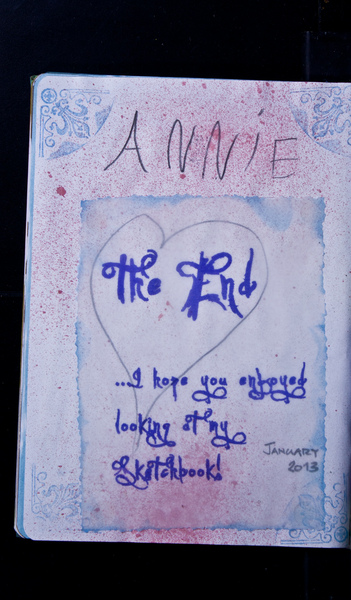 ANNiE
The End
..I hope you enjoyed
looking at my
Sketchbook!
JANUARY
2013